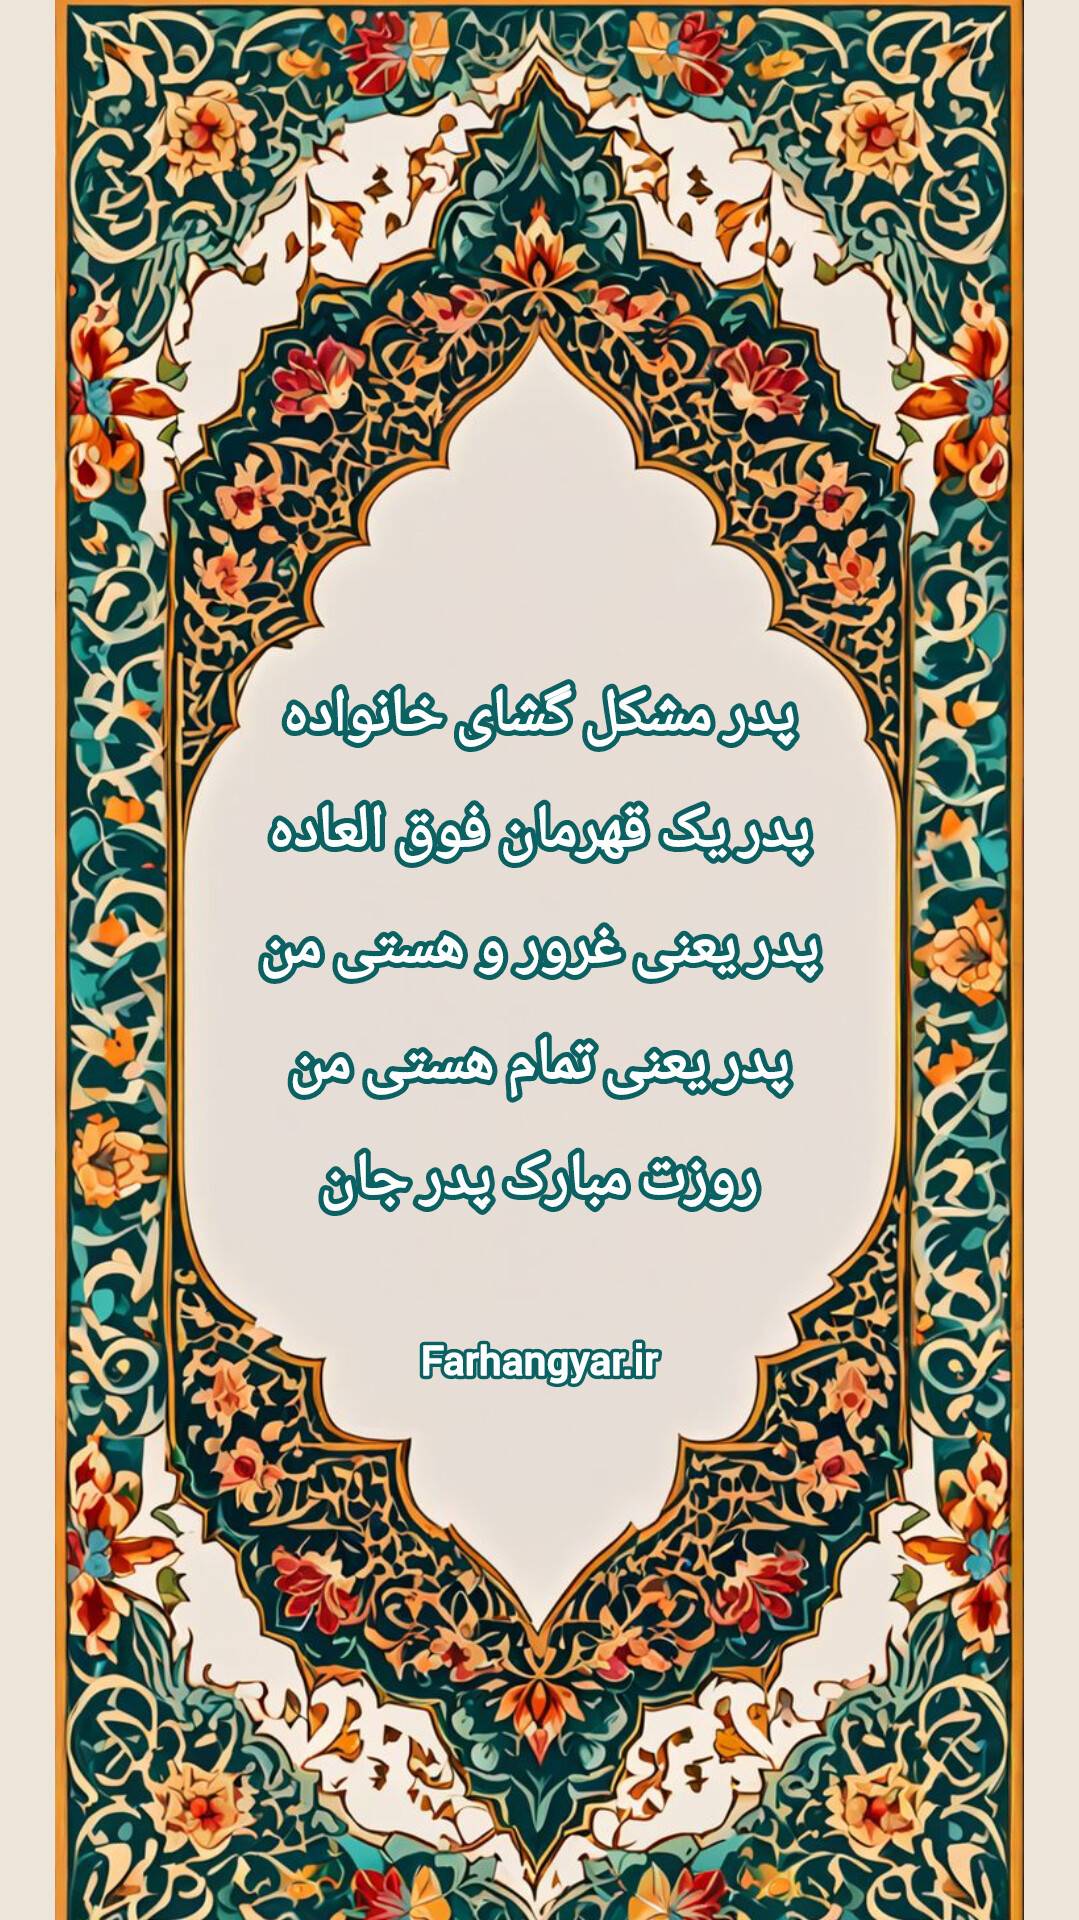 پدر مشکل گشای خانواده
پدر یک قهرمان فوق العاده
پدر یعنی غرور و هستی من
پدر یعنی تمام هستی من
روزت مبارک پدر جان
Farhangyar.ir